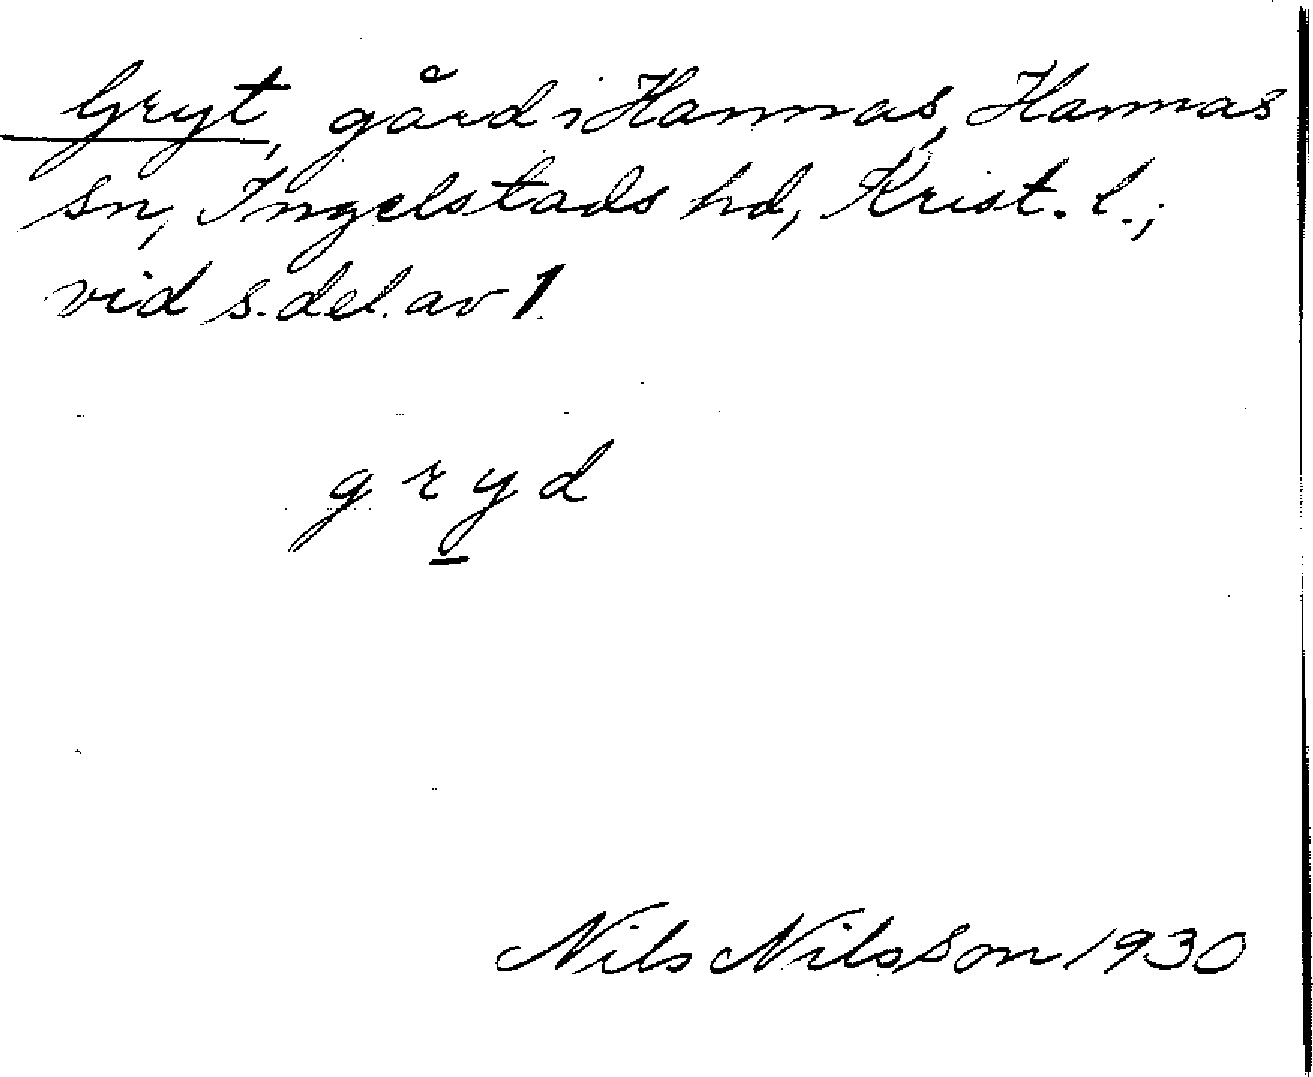 Gryt, gård i Hannas, Hannas
sn, Ingelstads hd, Krist. l.;
vid s. del. av 1.
gryd
Nils Nilsson 1930